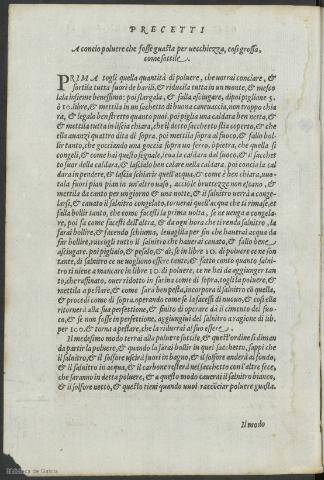 PRECETTI
Acconcio poluere che fosse guasta per uecchiezza, cosi grossa,
come sottile.
PRIMA togli quella quantità di poluere, che uorrai conciare, &
sortila tutta fuori de barili, & riducila tutta in un monte, & mesco
lala insieme benissimo: poi slargala, & falla asciugare, dipoi piglione 5.
ò 10. libre, & mettila in un sachetto di buona caneuaccia, non troppo chia
ra, & legalo ben stretto quanto puoi. poi piglia una caldara ben netta, &
& mettila tutta in liscia chiara, che'l detto sacchetto stia coperto, & che
ella auanzi quattro dita di sopra, poi mettila sopra al fuoco, & falla bol
lir tanto, che gocciando una goccia sopra un ferro, ò pietra, che quella si
congeli, & come hai questo segnale, leua la caldara dal fuoco, & il sacchet
to fuor della caldara, & lascialo ben colare nella caldara. poi concia la cal
dara in pendere, & lascia schiarir quell'acqua, & come è ben chiara, uuo-
tala fuori pian pian in un'altro uaso, acciò le bruttezze non escano, &
mettila da canto per un giorno & una notte, & il salnitro uerrà à conge-
larsi, & cauato il salnitro congelato, tornerai quell'acqua che ti rimase, et
falla bollir tanto, che come facesti la prima uolta, se ne uenga à congela-
re, poi fa come facesti dell'altra, & da ogni hora che tirendo salnitro, la
farai bollire, & facendo schiuma, leuaglila per fin che hauerai acqua da
far bollire, raccogli tutto il salnitro che hauerai cauato, & fallo bene
asciugare. poi piglialo, & pesalo, & di, se in libre 10. di poluere ce ne son
tante, di salnitro ce ne uogliono essere tante, & fatto conto quanto salni-
tro ti uiene a mancare in libre 10. di poluere, ce ne hai da aggiunger tan
to, che raffinato, ouer ridotto in farina come di sopra, togli la poluere, &
mettila a pestare, & come sarà ben pesta, incorpora il salnitro cō quella,
& procedi come di sopra, operando come se la facessi di nuouo, & cosi ella
ritornerà alla sua perfettione, & finito di operare dà il cimento del fuo-
co, & se non fosse in perfettione, aggiungiui del salnitro à ragione di lib.
per 100. & torna a pestare, che la ridurrai al suo essere.
Il medesimo modo terrai alla poluere sottile, & quest'ordine si diman
da partir la poluere, & quando la farai bollir in quei sacchetti, sappi che
il salnitro, & il solfore uscirà fuori in bagno, & il solfore anderà al fondo,
& il salnitro in acqua, & il carbone resterà nel sacchetto con l'altre fece,
che saranno in detta poluere, & a questo modo cauerai il salnitro bianco,
& il solfore netto, & questo tieni quando uuoi racconciar poluere guasta.
Il modo
Biblioteca de Galicia